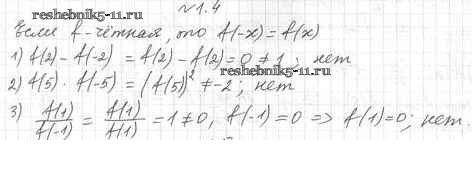 №1.4
reshebnik5-11.ru
Если f-чётная, то f(-x)=f(x)
1) f(2)-f(-2) = f(2)-f(2)=0≠1; нет
reshebnik5-11.ru
2) f(5)·f(-5)=(f(5))²≠-2; нет
3) f(1)/f(-1) = f(1)/f(1) =1≠0, f(-1)=0 => f(1)=0; нет.